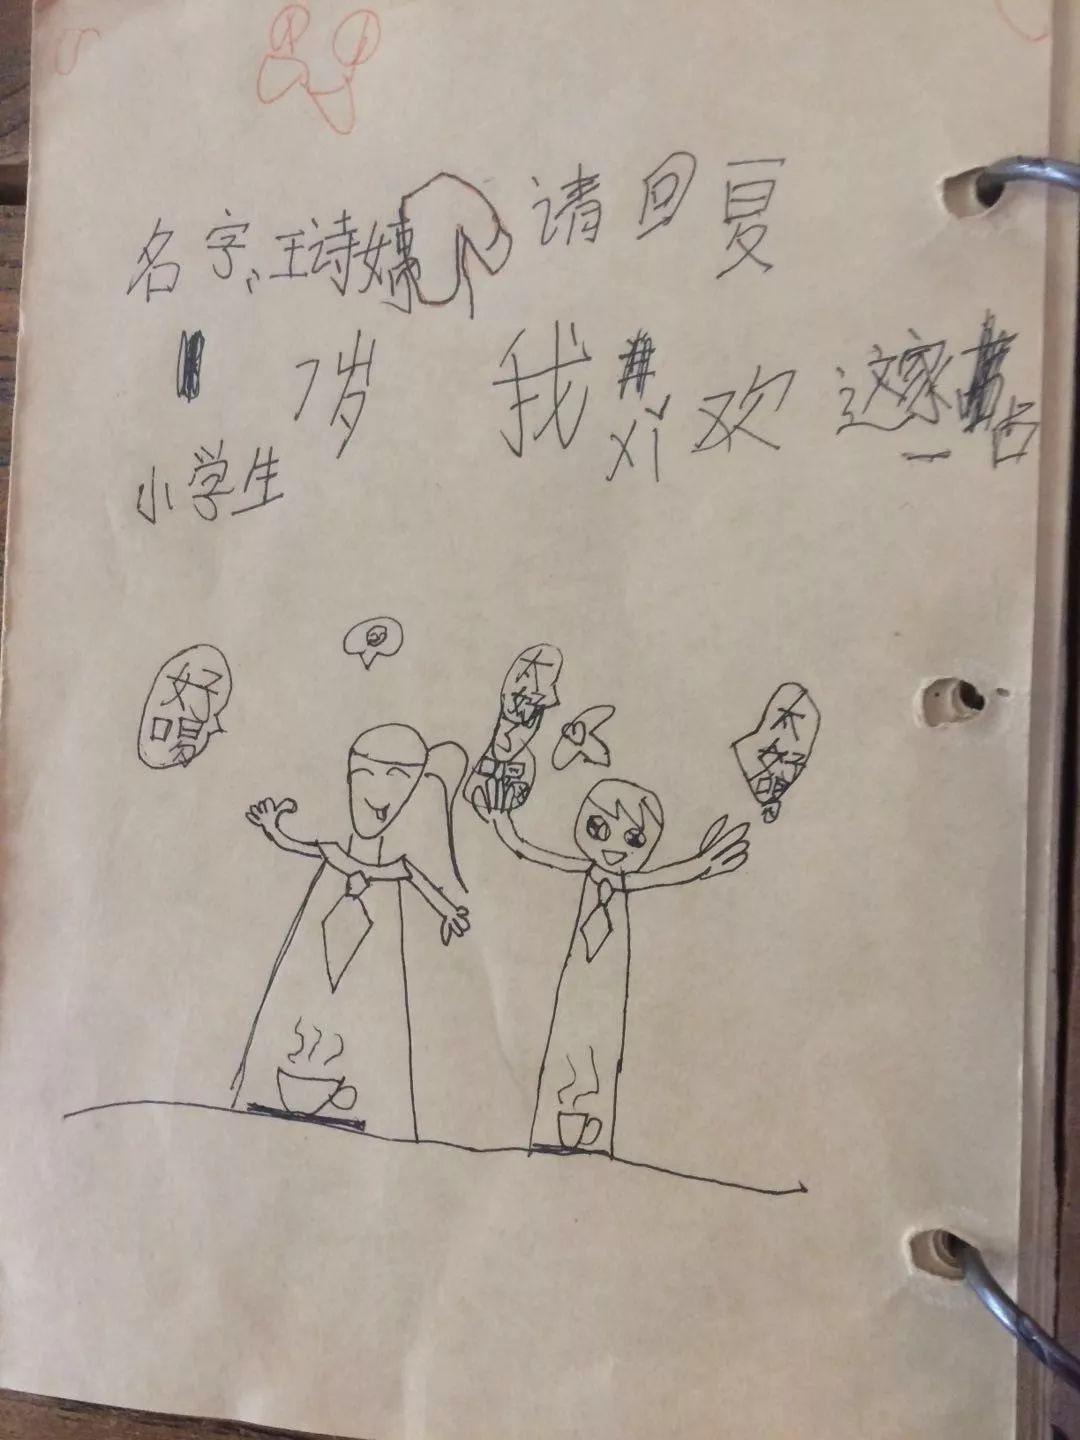 请回复
名字:王诗婷
7岁 我xǐ欢这家店
小学生
好喝
太好喝
太好喝